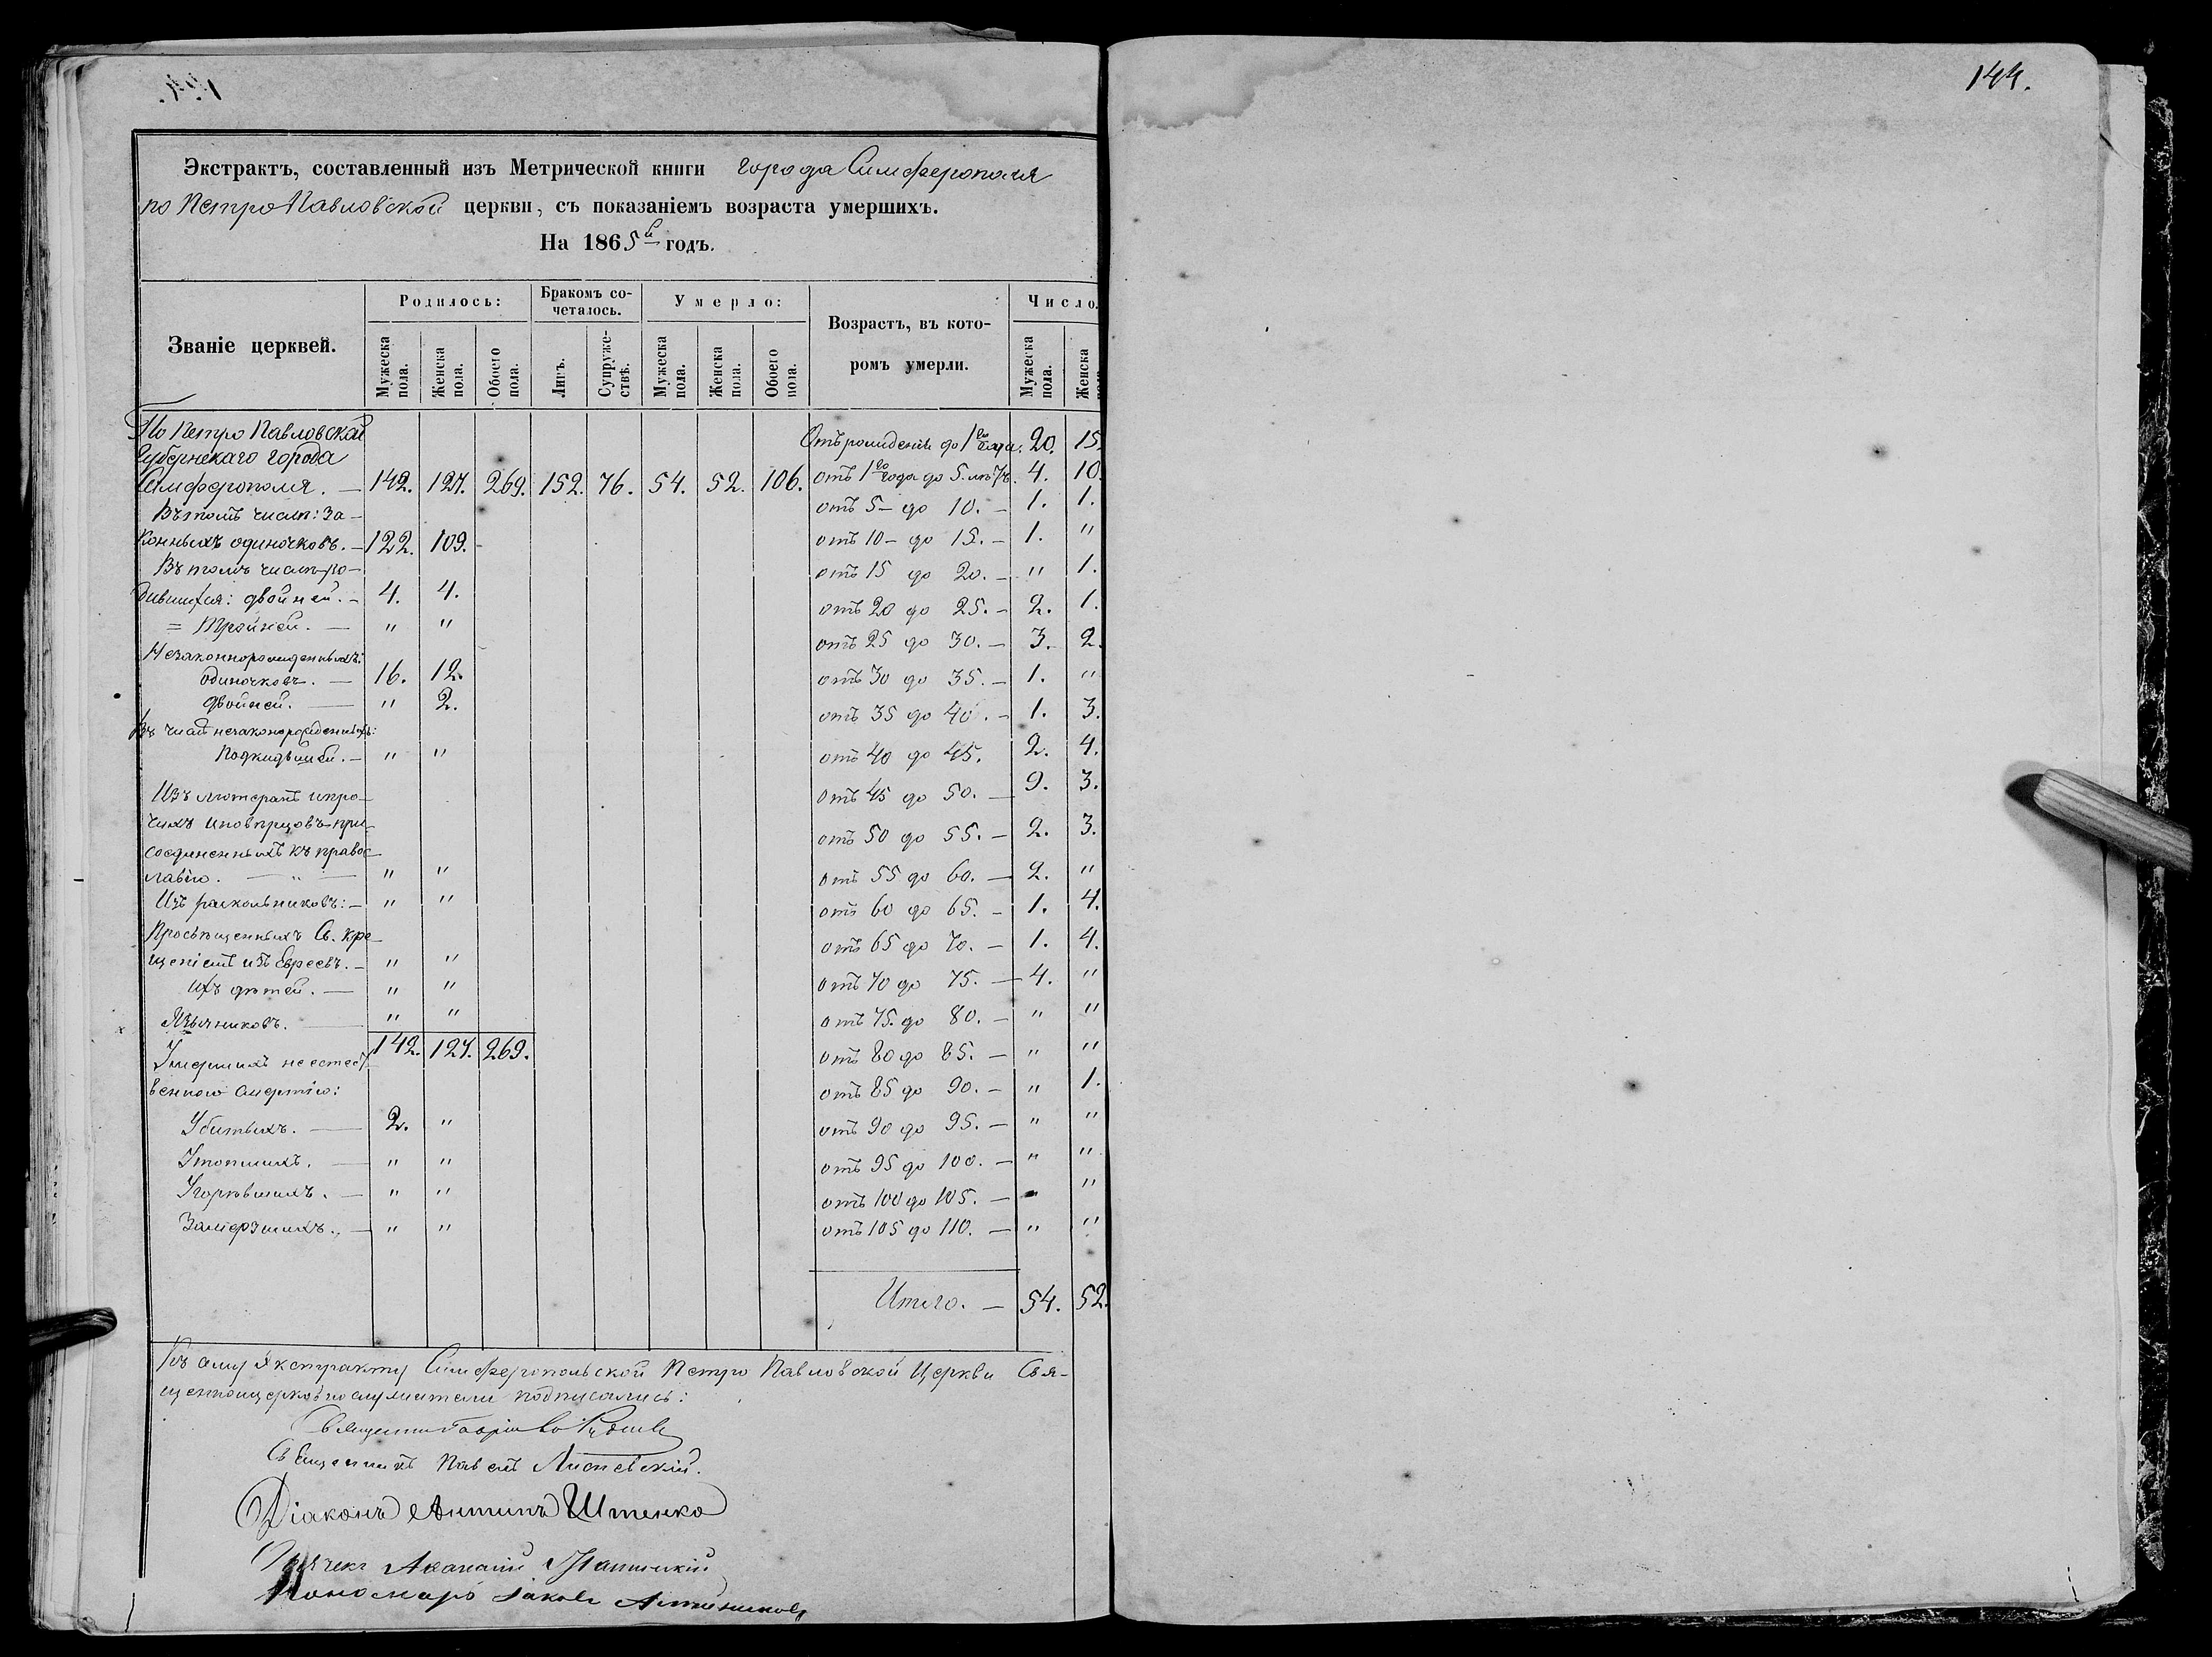 144.
Экстрактъ, составленный изъ Метрической книги города Симферополя
по Петро Павловской церкви, съ показаніемъ возраста умершихъ.
На 1865й годъ.
Званіе церквей.
Родилось:
Бракомъ со-
четалось.
Умерло:
Возрастъ, въ кото-
ромъ умерли.
Число.
Мужеска пола.
Женска пола.
Обоего пола.
Лицъ.
Супруже-
ствъ.
Мужеска пола.
Женска пола.
Обоего пола.
Мужеска пола.
Женска
По Петро Павловской
Губернскаго города
Симферополя. — 142. 127. 269. 152. 76. 54. 52. 106.
Въ томъ числѣ: за-
конныхъ одиночковъ. — 122. 109.
Въ томъ числѣ ро-
дившихся: двойней. — 4. 4.
= Тройней. — " "
Незаконнорожденныхъ:
одиночковъ. — 16. 12.
двойней. — " 2.
Въ числѣ незаконорожденныхъ:
Подкидышей. — " "
Изъ лютеранъ и про-
чихъ иновѣрцовъ при-
соединенныхъ къ правос-
лавію. — " — " "
Изъ раскольниковъ: — " "
Просвѣщенныхъ Св. кре-
щеніемъ изъ Евреевъ. — " "
Ихъ дѣтей. — " "
Язычниковъ. — " "
142. 127. 269.
Умершихъ неестест-
венною смертію:
Убитыхъ. — 2. "
Утопшихъ. — " "
Угорѣвшихъ. — " "
Замерзшихъ. — " "
Отъ рожденія до 1го года. 20. 15.
отъ 1го года до 5. лѣтъ. 4. 10.
отъ 5 – до 10. – 1. 1.
отъ 10 – до 15. – 1. "
отъ 15 до 20. – " 1.
отъ 20 до 25. – 2. 1.
отъ 25 до 30. – 3. 2.
отъ 30 до 35. – 1. "
отъ 35 до 40. – 1. 3.
отъ 40 до 45. 2. 4.
отъ 45 до 50. — 9. 3.
отъ 50 до 55. – 2. 3.
отъ 55 до 60. — 2. "
отъ 60 до 65. – 1. 4.
отъ 65 до 70. – 1. 4.
отъ 70 до 75. — 4. "
отъ 75 до 80. – " "
отъ 80 до 85. – " "
отъ 85 до 90. – " 1.
отъ 90 до 95. – " "
отъ 95 до 100. – " "
отъ 100 до 105. – "
отъ 105 до 110. — " "
Итого. — 54. 52.
Къ сему Экстракту Симферопольской Петро Павловской Церкви Свя-
щенноцерковнослужители подписались:
Священникъ
Священникъ Павелъ
Діаконъ Антипъ Штенко
Афанасій
Пономарь Іаковъ